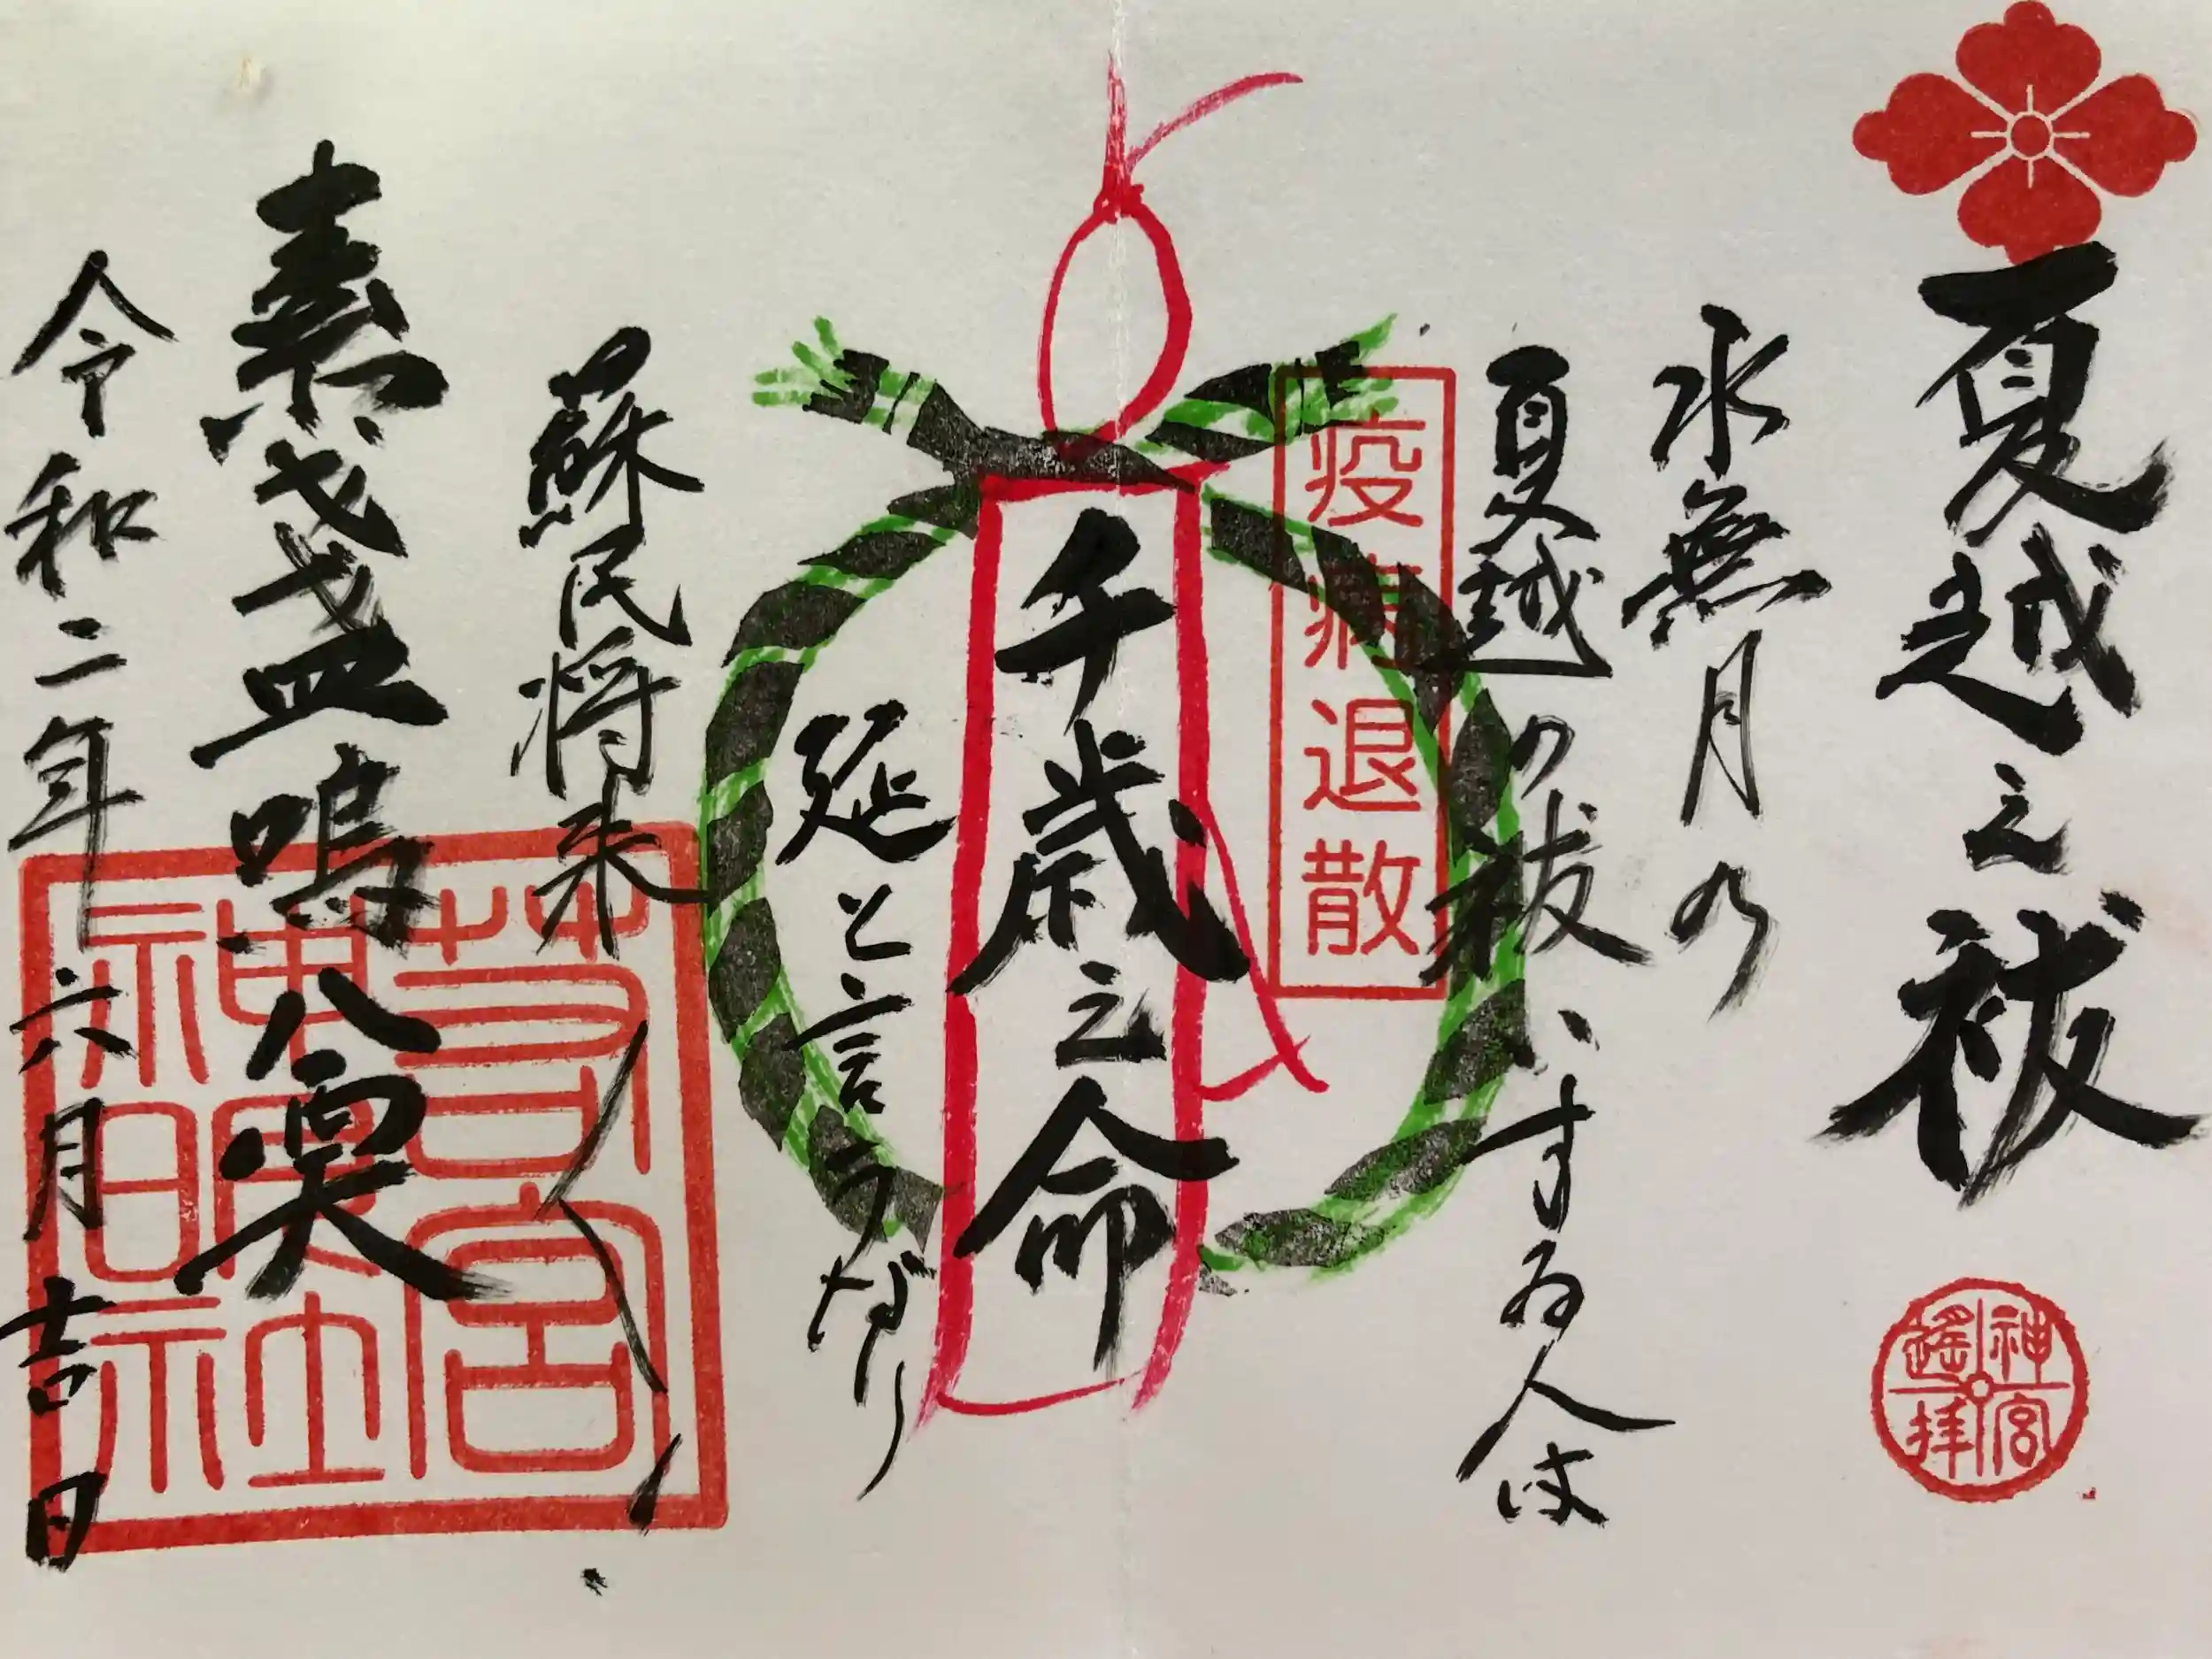 夏越之祓
神宮遙拝
水無月の
夏越の祓いする人は
疫病退散
千歳之命
延と言うなり
蘇民将来〱
素盞嗚尊
令和二年六月吉日